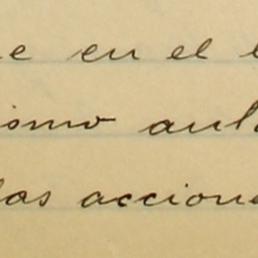 e en el
ismo aul
las accion